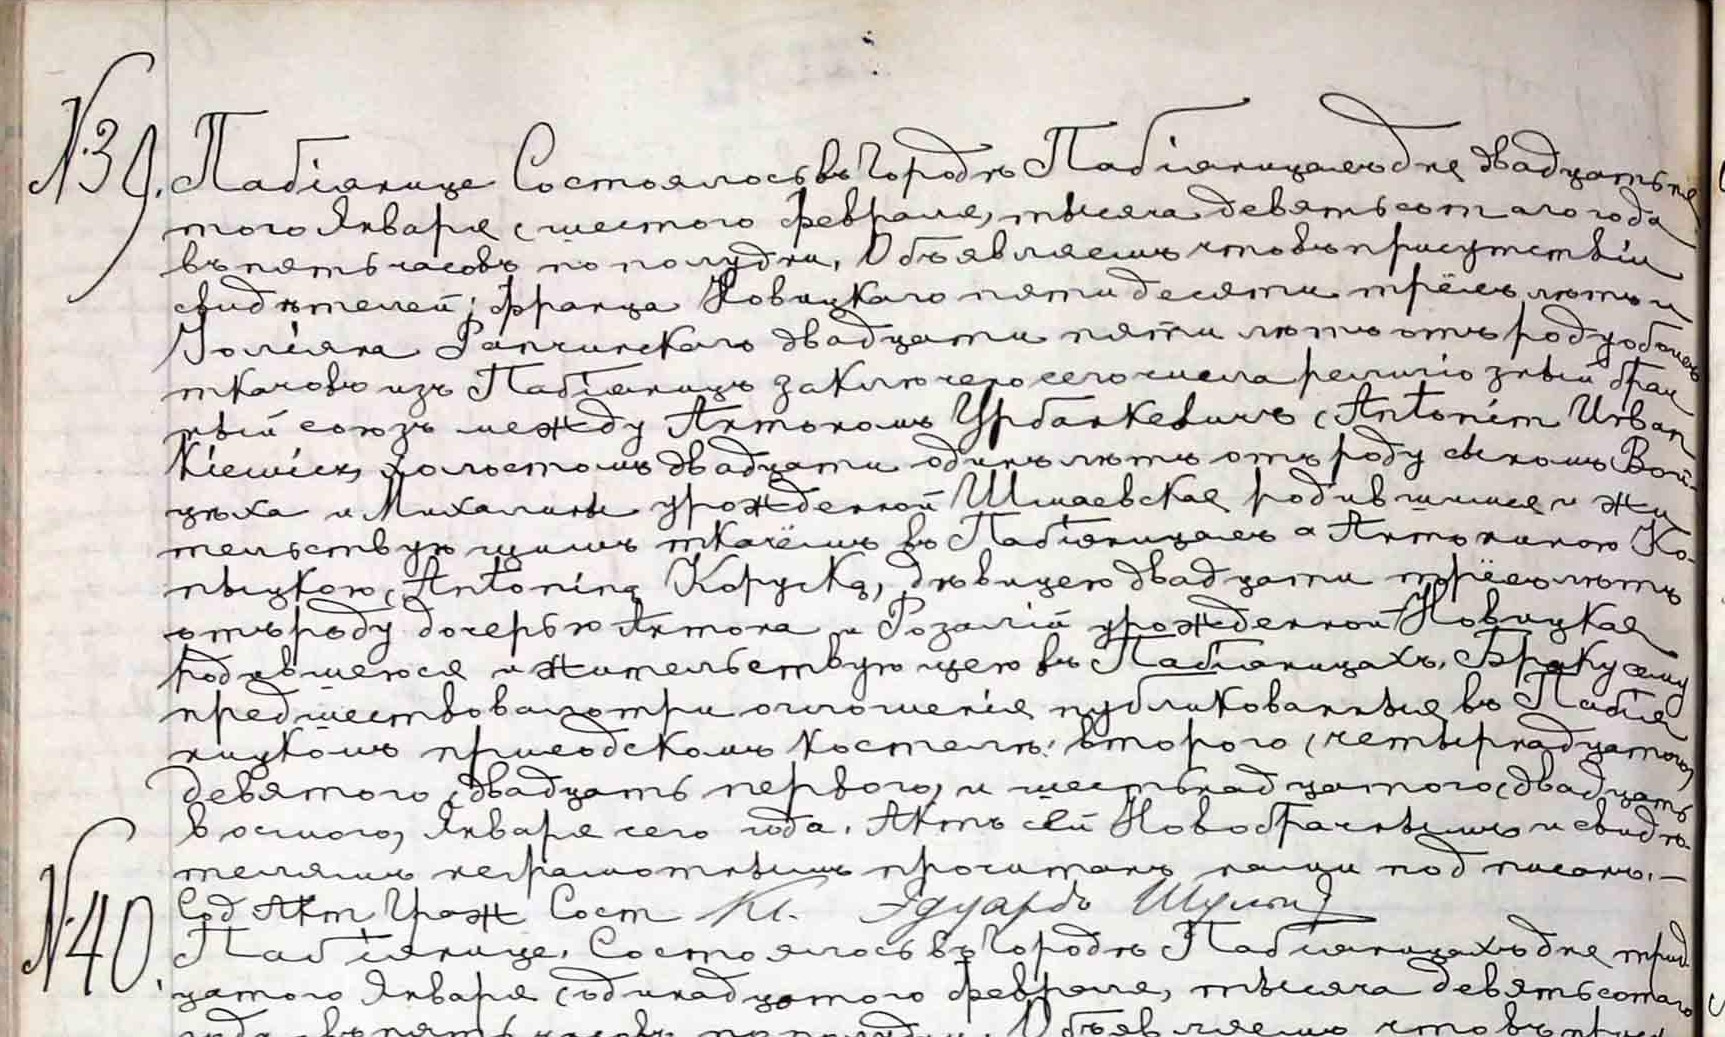 №39. Пабіянице Состоялось въ Городѣ Пабіяницахъ дня двадцать пя
того Января (шестого февраля) тысяча девятьсотаго года
въ пять часовъ по полудни. Объявляемъ что въ присутствіи
свидѣтелей; Франца Новицкаго пятидесяти трёхъ лѣтъ и
Юліяна Рапчинскаго двадцати пяти лѣтъ отъ роду обоихъ
ткачовъ изъ Пабіяницъ заключено сего числа религіозный брач
ный союзъ между Антономъ Урбанкевичъ (Antonim Urban
kiewicz) холостомъ двадцати одинъ лѣтъ отъ роду сыномъ Вой-
цѣха и Михалины урожденной Шмаевская родившимся и жи
тельствующимъ ткачёмъ въ Пабіяницахъ а Антониною Ко-
пыцкою (Antoniną Kopycką) дѣвицею двадцати трёхъ лѣтъ
отъ роду дочерью Антона и Розаліи урожденной Новицкая
родившеюся и жительствующею въ Пабіяницахъ. Браку сему
предшествовало три оглошенія публикованныя въ Пабія
ницкомъ приходскомъ костелѣ: второго (четырнадцатого)
девятого (двадцать первого) и шестьнадцатого (двадцать
восмого) Января сего года. Актъ сей Новобрачнымъ и свидѣ-
телямъ неграмотнымъ прочитанъ нами подписанъ.—
Сод Акт Граж Сост Кс. Эдуардъ
№40. Пабіянице. Состоялось въ Городѣ Пабіяницахъ дня трид
цатого Января (одинадцатого февраля) тысяча девятьсотаго
года въ пять часовъ по полудни. Объявляемъ что въ прису